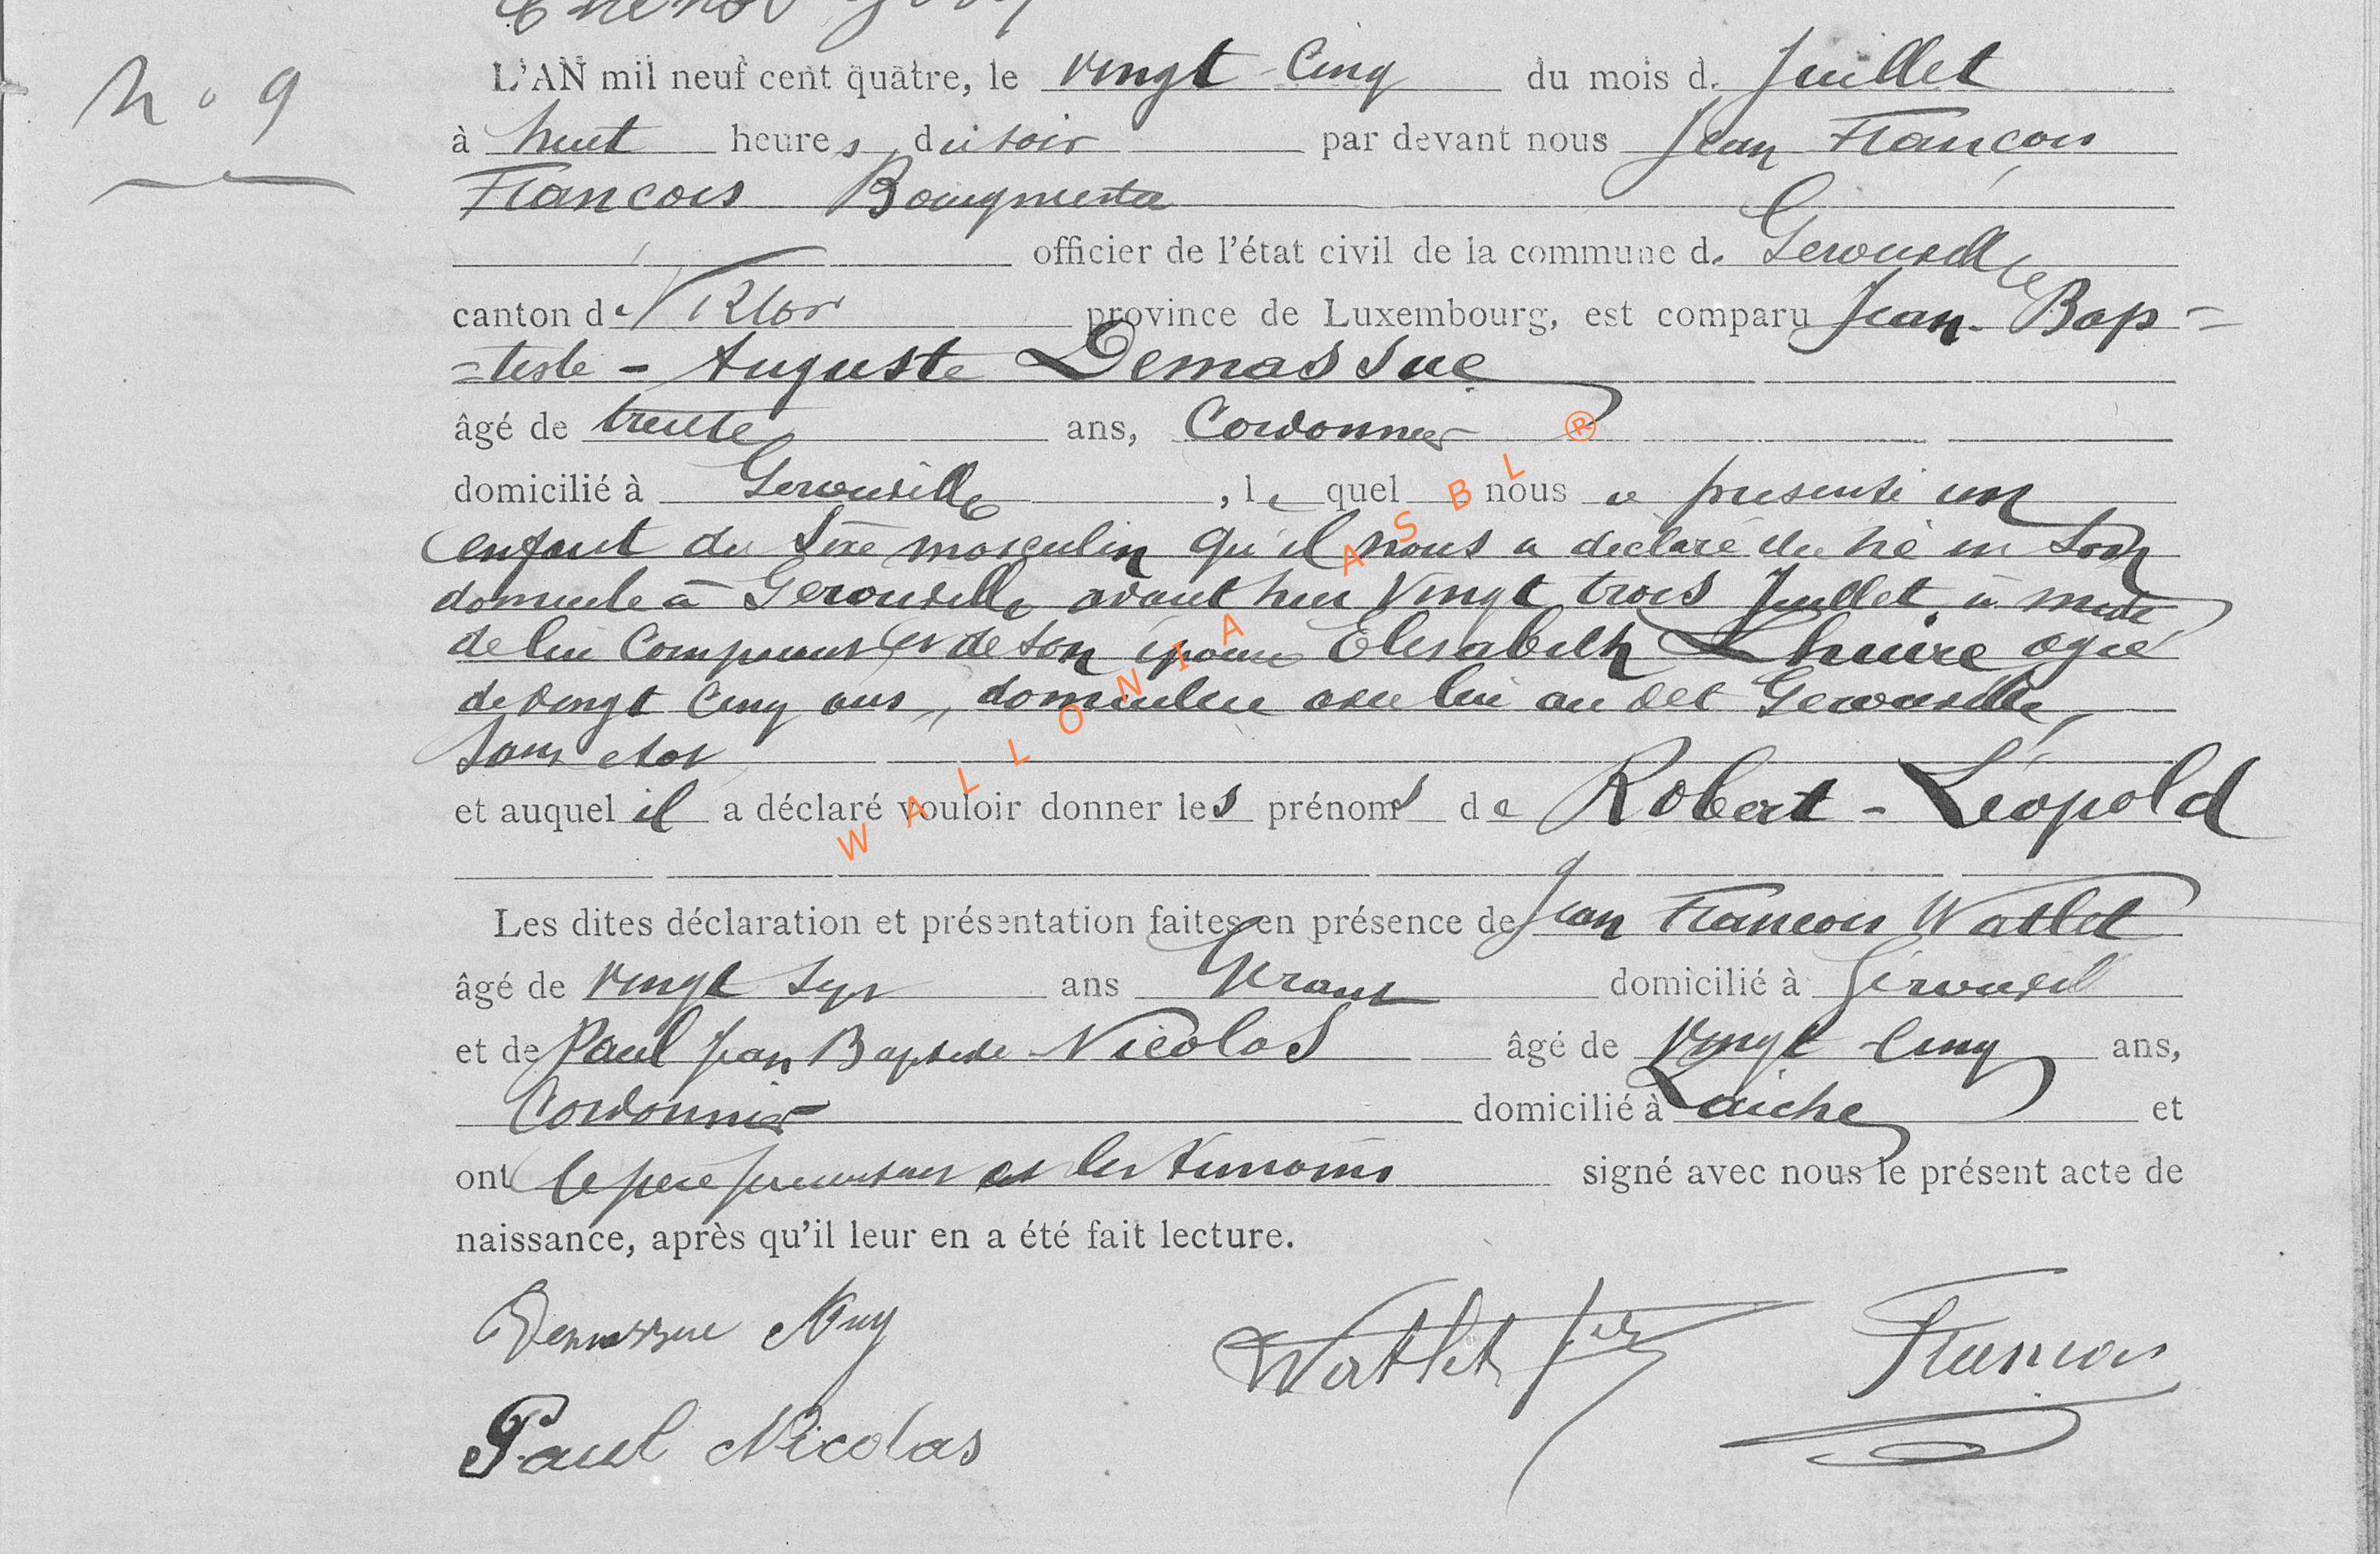 N° 9
L'AN mil neuf cent quatre, le vingt cinq du mois de Juillet
à huit heures du soir par devant nous Jean François
François Bourgmestre
officier de l'état civil de la commune de Gerouville
canton de Virton province de Luxembourg, est comparu Jean-Bap=
=tiste-Auguste Demassue
âgé de trente ans, Cordonnier
domicilié à Gerouville, lequel nous a présenté un
enfant du sexe masculin qu'il nous a déclaré être né en son
domicile à Gerouville avant hier vingt trois Juillet à midi
de lui comparant et de son épouse Elisabeth Lhuire agée
de vingt cinq ans, domiciliée avec lui au dit Gerouville,
sans état
et auquel il a déclaré vouloir donner les prénoms de Robert-Léopold
Les dites déclaration et présentation faites en présence de Jean François Watlet
âgé de vingt sept ans domicilié à Gerouvil
et de Paul Jean Baptiste Nicolas âgé de vingt cinq ans,
Cordonnier domicilié à Laiche et
ont le père et les témoins signé avec nous le présent acte de
naissance, après qu'il leur en a été fait lecture.
Demassue Aug Watlet François
Paul Nicolas
WALLONIA ASBL ®